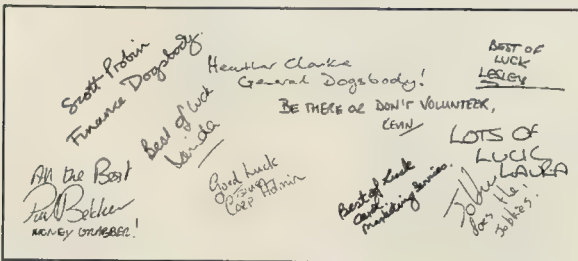 Scott Probin
Finance Dogsbody.
Heather Clarke
General Dogsbody!
BEST OF
LUCK
LESLEY
BE THERE OR DON'T VOLUNTEER,
KEVIN
Best of luck
Linda
LOTS OF
LUCK
LAURA
All the Best
Paul
MONEY GRABBER!
Good Luck
Corp Admin
Best of Luck
Carol
Marketing Services.
John
does the
Jobbies!